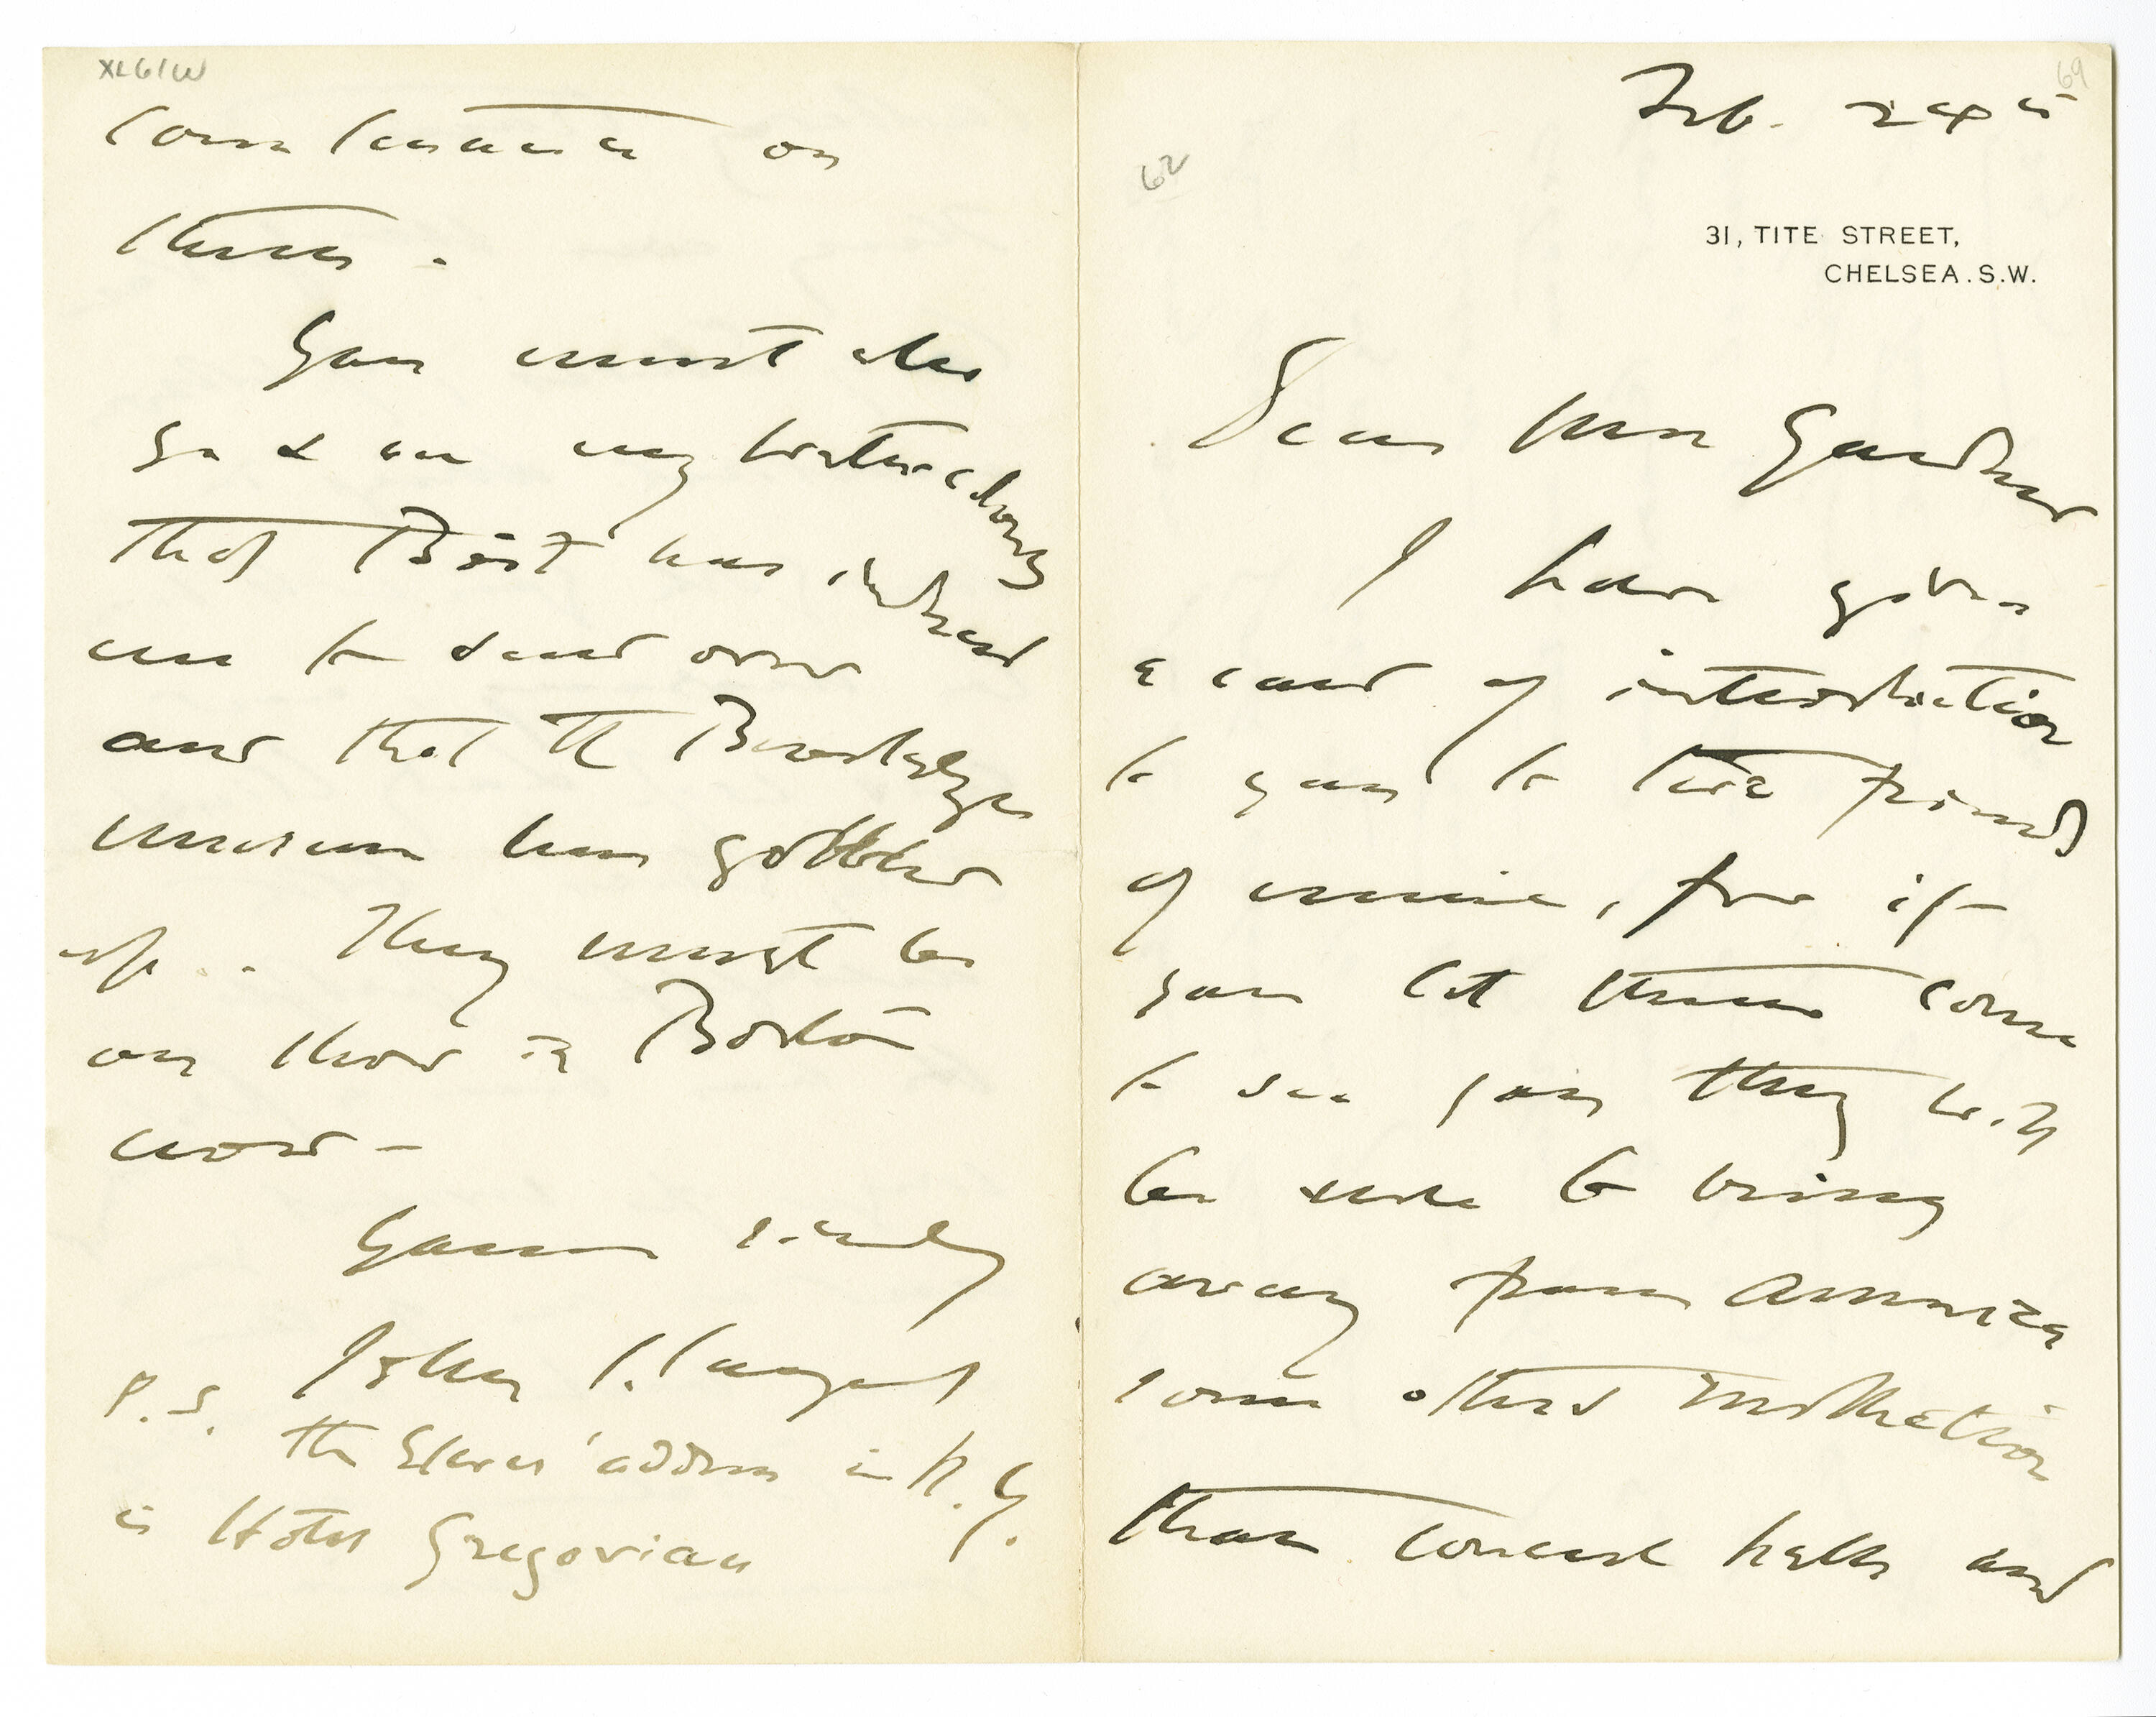 69
Feb. 24th
62
31, TITE STREET,
CHELSEA. S.W.
Dear Mrs Gardner
I have given
a card of introduction
to you to friends
of mine, for if
you let them come
to see you they will
be sure to bring
away from America
some other recollection
than concert halls and
XLG/W
on
them.
You must also
go & see my watercolours
that Boit has induced
me to send over
and that the Brooklyn
museum has gobbled
up. They must be
on show in Boston
now -
Yours sincerely
John S. Sargent
P.S. the Elwes' address in N.Y.
is Hotel Gregorian